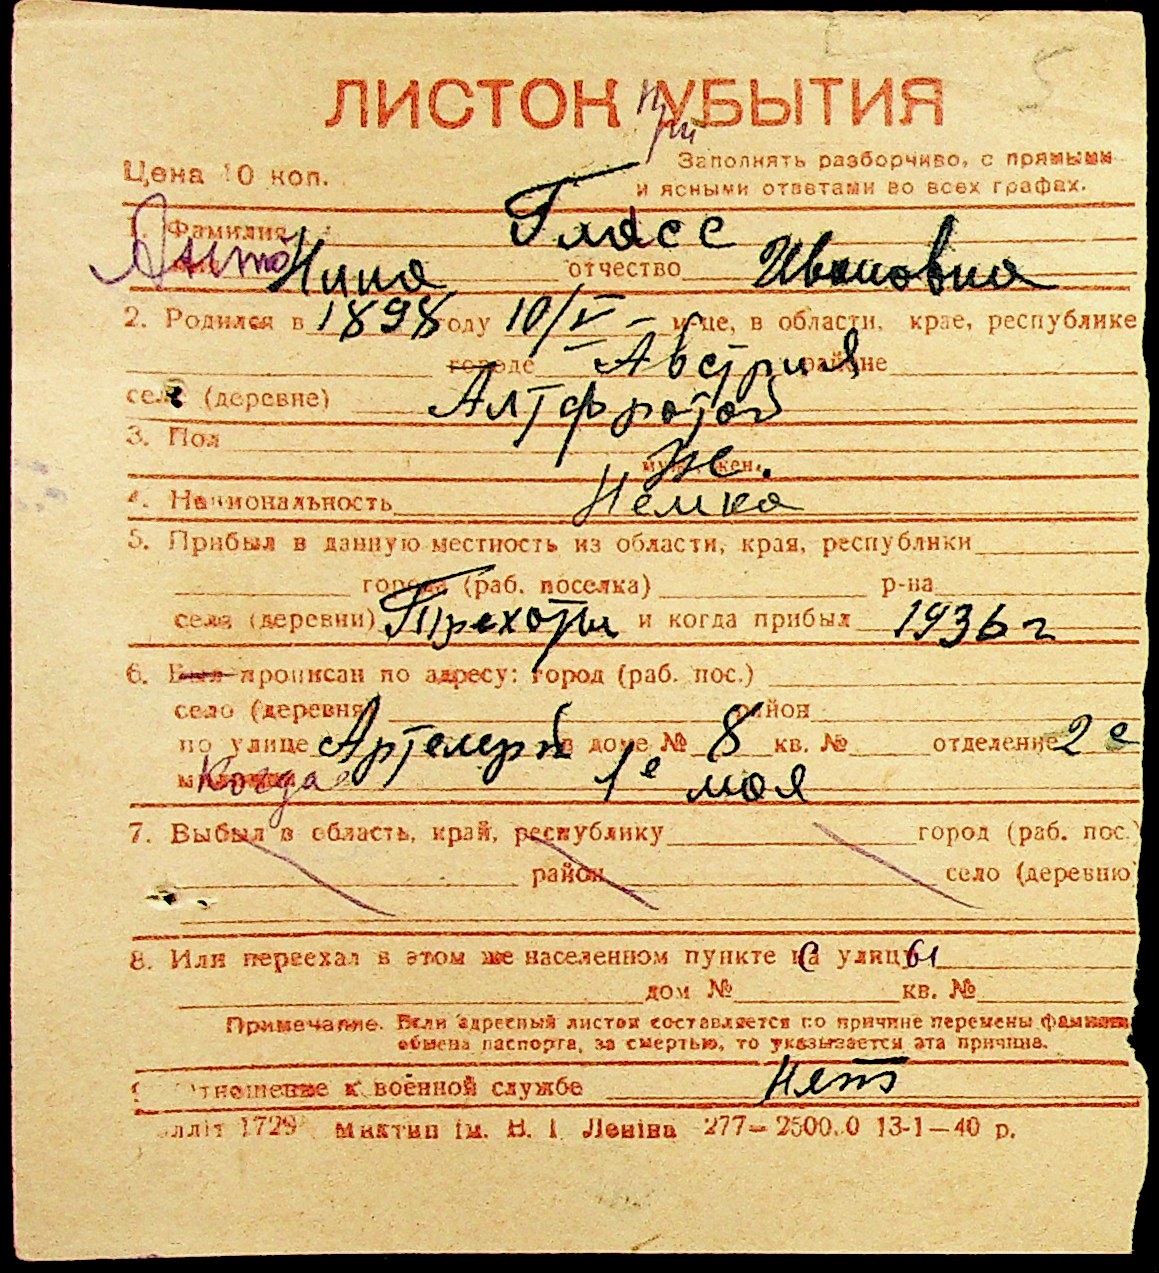 5
ЛИСТОК УБЫТИЯ
при
Цена 10 коп.
Заполнять разборчиво, с прямыми
и ясными ответами во всех графах.
1. Фамилия Глясс
Нина отчество Ивановна
2. Родился в 1898 году 10/V — м-це, в области, крае, республике
городе Австрия районе
село (деревне)
3. Пол
муж., жен. Ж.
4. Национальность Немка
5. Прибыл в данную местность из области, края, республики
города (раб. поселка) р-на
села (деревни) Трехоты и когда прибыл 1936 г
6. Был прописан по адресу: город (раб. пос.)
село (деревня) район
по улице в доме № 8 кв. № отделение 2 е
Когда 1 е мая
7. Выбыл в область, край, республику город (раб. пос.)
район село (деревню)
8. Или переехал в этом же населенном пункте с улицы
дом № кв. №
Примечание. Если адресный листок составляется по причине перемены фамилии,
обмена паспорта, за смертью, то указывается эта причина.
Отношение к военной службе Нет
1729 ім. В. І. Леніна 277— 2500.0 13-1—40 р.